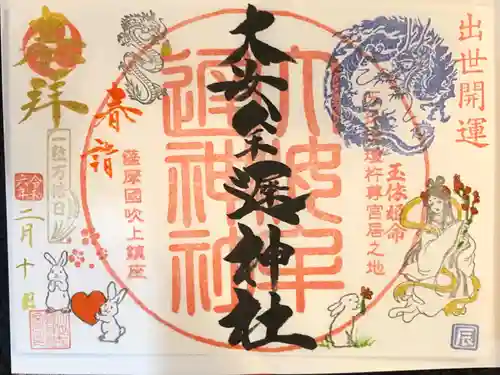 出世開運
玉依姫命
瓊杵尊宮居之地
大汝牟遅神社
大汝牟
遲神社
薩摩國吹上鎮座
春詣
奉拝
一粒万倍日
令和六年
二月十日
辰